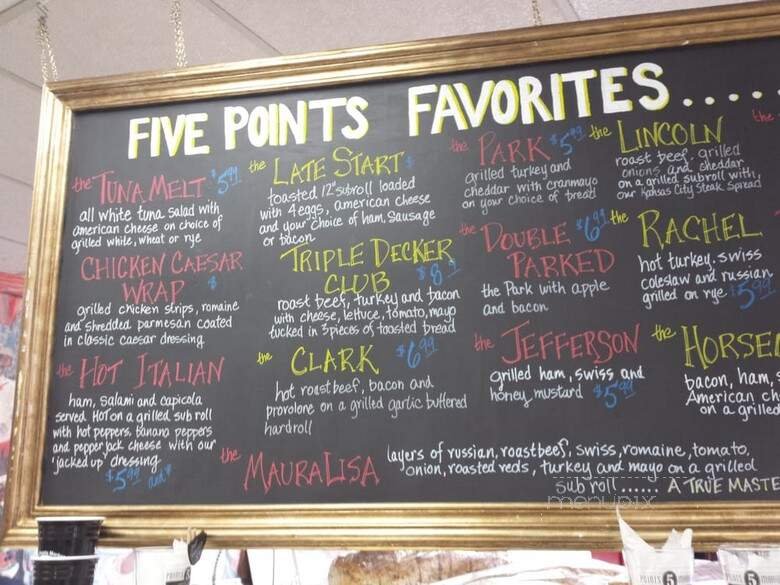 FIVE POINTS FAVORITES.....
the TUNA MELT $5.99
all white tuna salad with
american cheese on choice of
grilled white, wheat or rye
CHICKEN CAESAR
WRAP $
grilled chicken strips, romaine
and shredded parmesan coated
in classic caesar dressing
the HOT ITALIAN
ham, salami and capicola
served HOT on a grilled sub roll
with hot peppers, banana peppers
and pepper jack cheese with our
"jacked up" dressing
$5.99
the LATE START
toasted 12" subroll loaded
with 4 eggs, american cheese
and your choice of ham, sausage
or bacon
TRIPLE DECKER
CLUB $8
roast beef, turkey and bacon
with cheese, lettuce, tomato, mayo
tucked in 3 pieces of toasted bread
the CLARK $6.99
hot roast beef, bacon and
provolone on a grilled garlic buttered
hard roll
the PARK $5.99
grilled turkey and
cheddar with cranmayo
on your choice of bread
the DOUBLE $6.99
PARKED
the Park with apple
and bacon
the JEFFERSON
grilled ham, swiss and
honey mustard $5.99
the LINCOLN
roast beef, grilled
onions and cheddar
on a grilled subroll with
our Kansas City Steak Spread
the RACHEL
hot turkey, swiss
coleslaw and russian
grilled on rye $5.99
the HORSE
bacon, ham,
American ch
on a grilled
the
the MAURALISA
layers of russian, roast beef, swiss, romaine, tomato,
onion, roasted reds, turkey and mayo on a grilled
sub roll...... A TRUE MASTE
menupix
POINTS 5
5